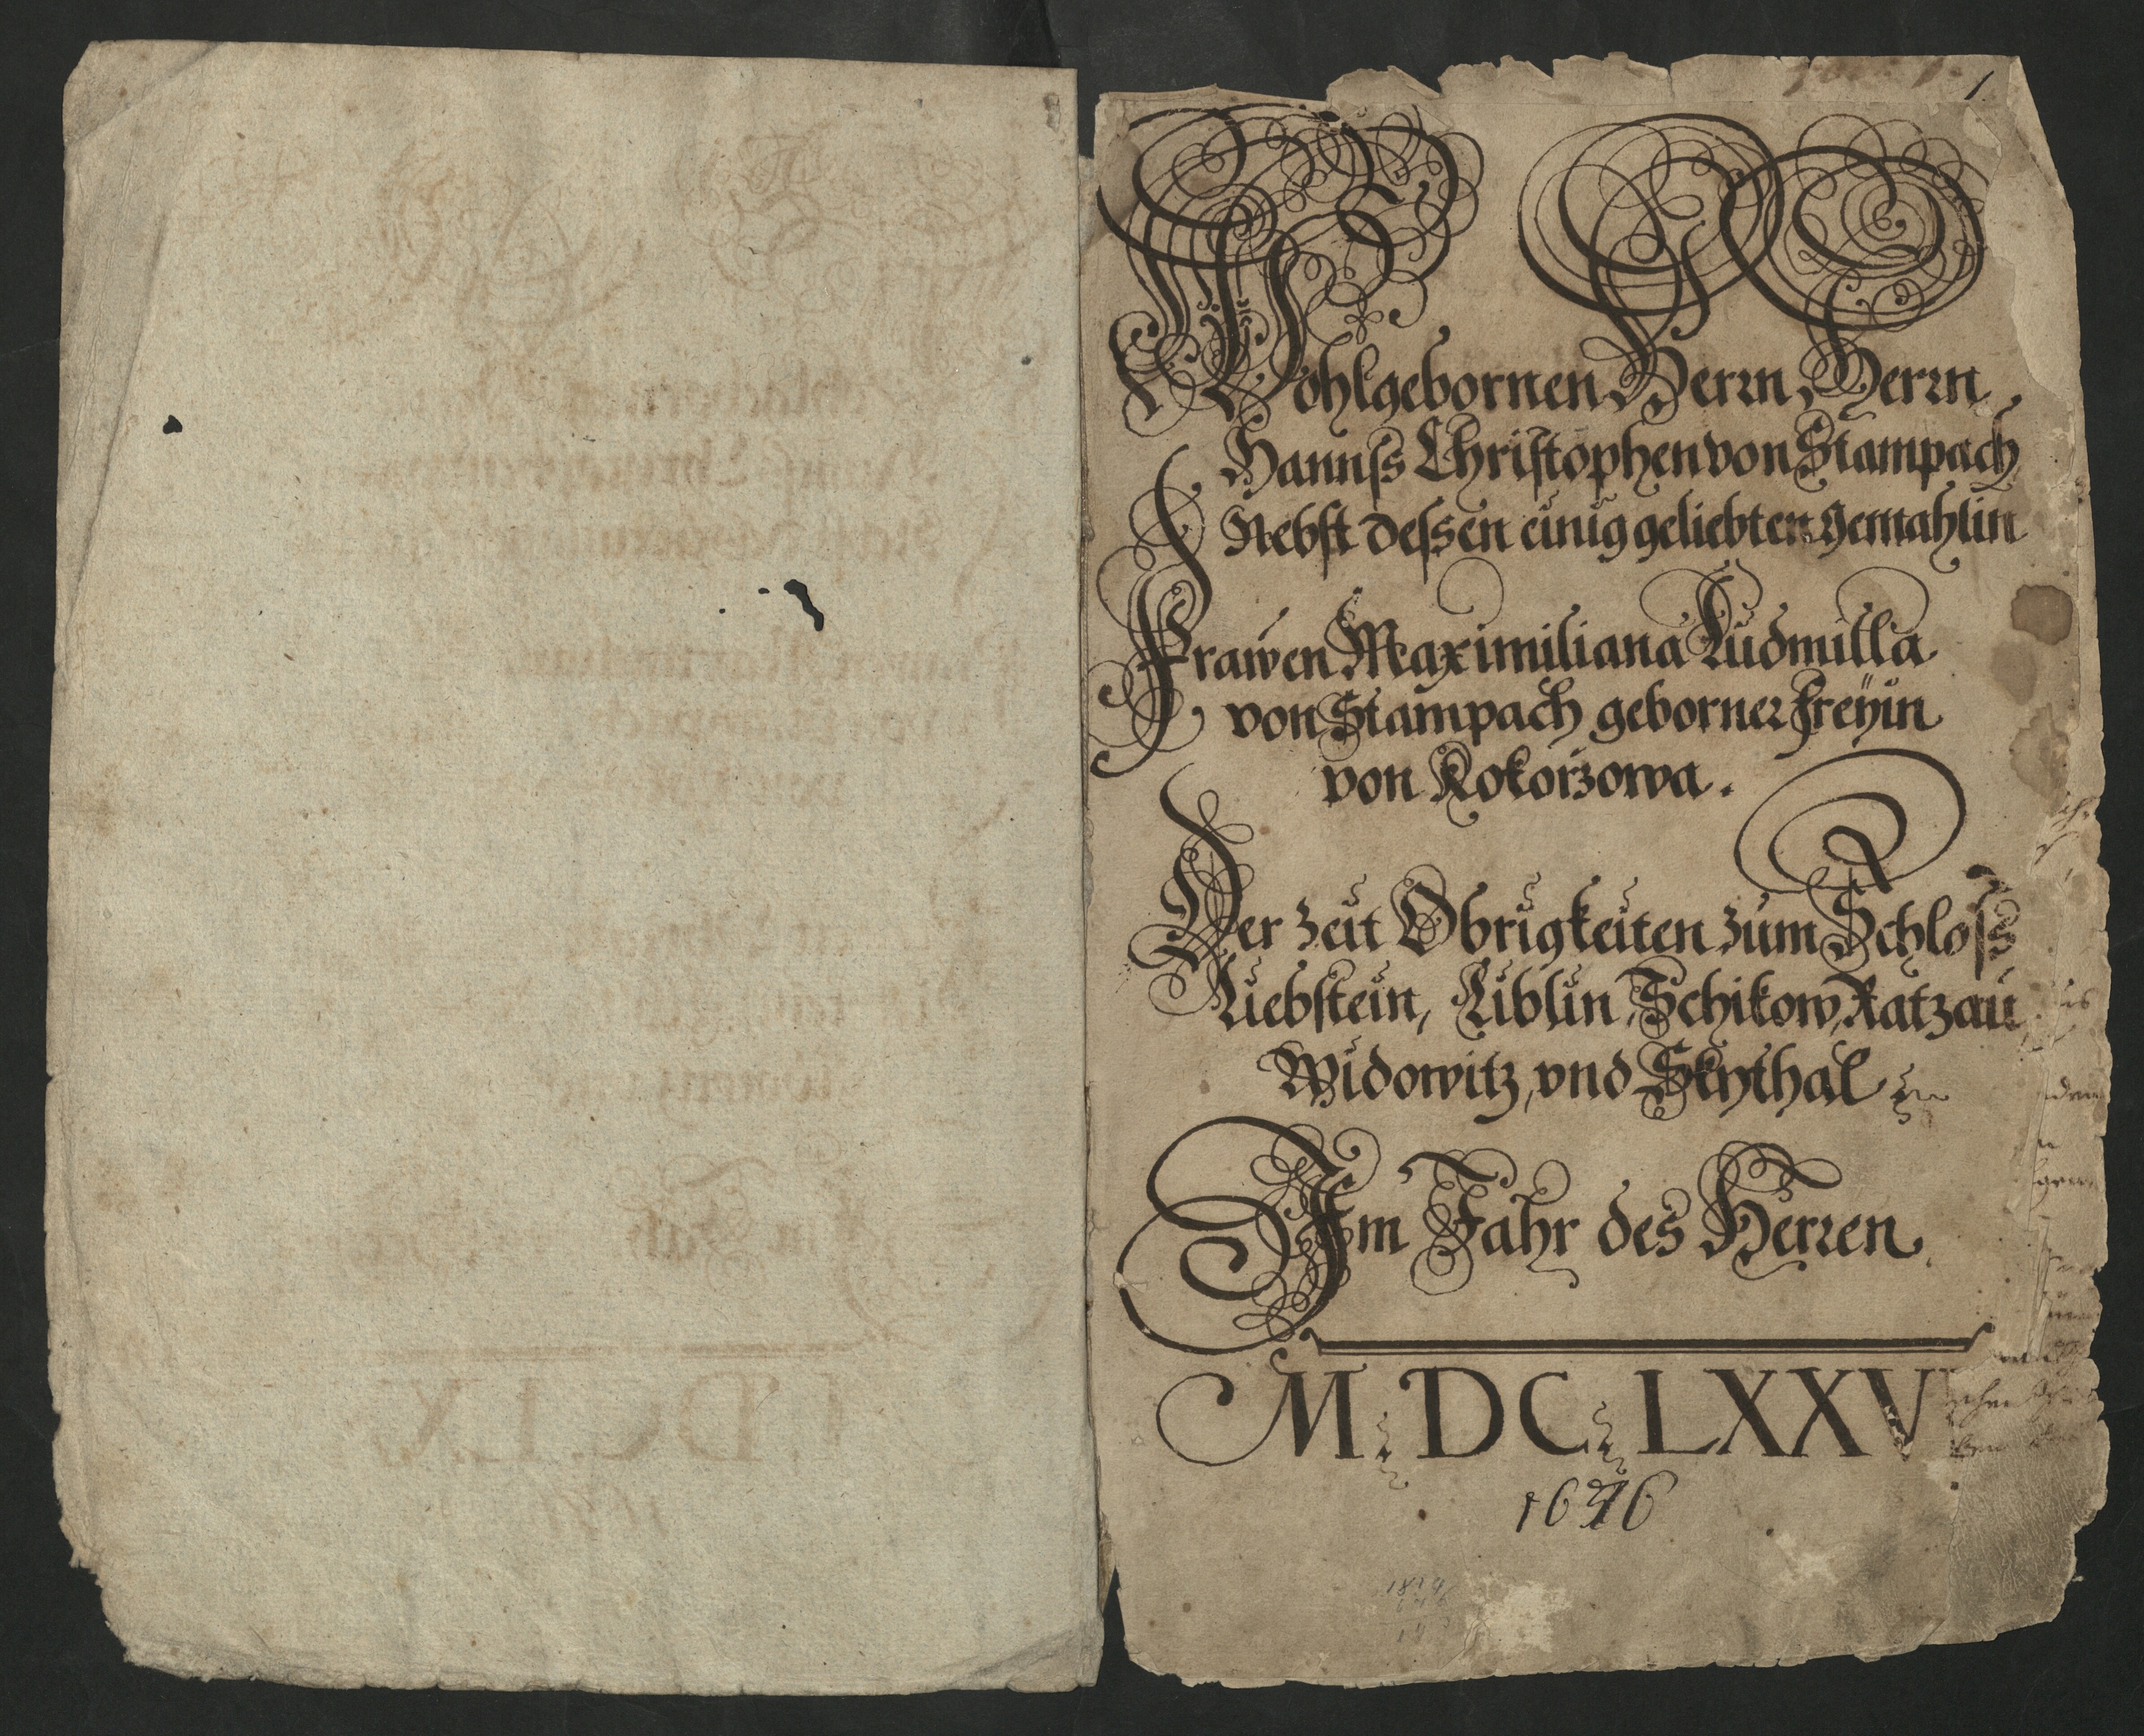 1
Wohlgebornen Herrn, Herrn
Hannss Christophen von Stampach
Nebst dessen einig geliebten gemahlin
Frawen Maximiliana Ludmilla
von Stampach geborner Freÿin
von Kokorzowa.
Der Zeit Obrigkeiten zum Schloss
Liebstein, Liblin, Schikow, Katzau
Widowitz, vnd Skythal
Im Jahr des Herren
M DC LXXV
1676